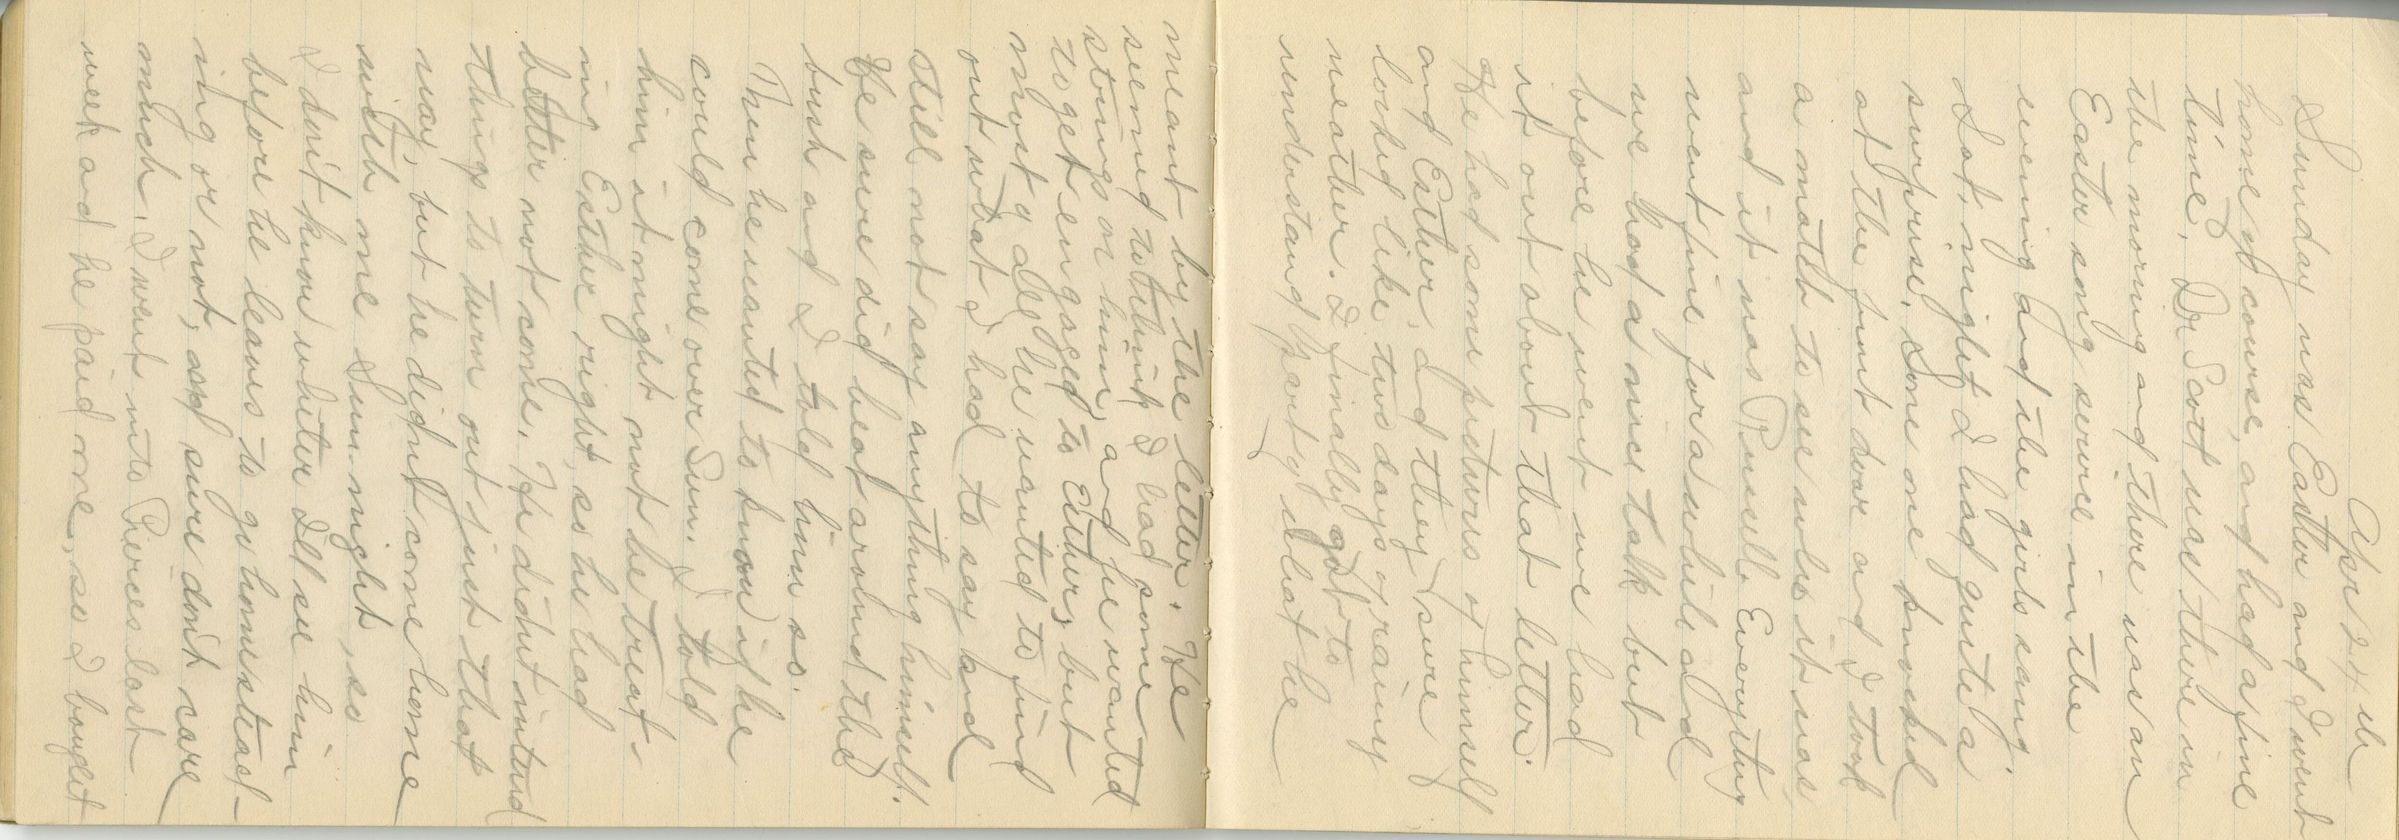 Apr 24th
Sunday was Easter and I went
home of course, and had a fine
time, Dr Scott was there in
the morning and there was an
Easter song service in the
evening and the girls sang.
Sat, night I had quite a
surprise. Some one knocked
at the front door and I took
a match to see who it was,
and it was Russell. Everything
went fine for a while and
we had a nice talk but
before he went we had
it out about that letter.
He had some pictures of himself
and Esther, and they sure
looked like two days of rainy
weather. I finally got to
understand partly what he
meant by the letter. He
seemed to think I had some
strings on him, and he wanted
to get engaged to Esther, but
most of all he wanted to find
out what I had to say and
still not say anything himself.
He sure did beat around the
bush and I told him so.
Then he wanted to know if he
could come over Sun. I told
him it might not be treat-
ing Esther right, so he had
better not come. He didnt intend
things to turn out just that
way, but he didnt come home
with me Sun night, so
I don't know wheter Ill see him
before he leaves to go homestead-
ing or not, and sure don't care
much. I went into Pierces last
week and he paid me, so I bought